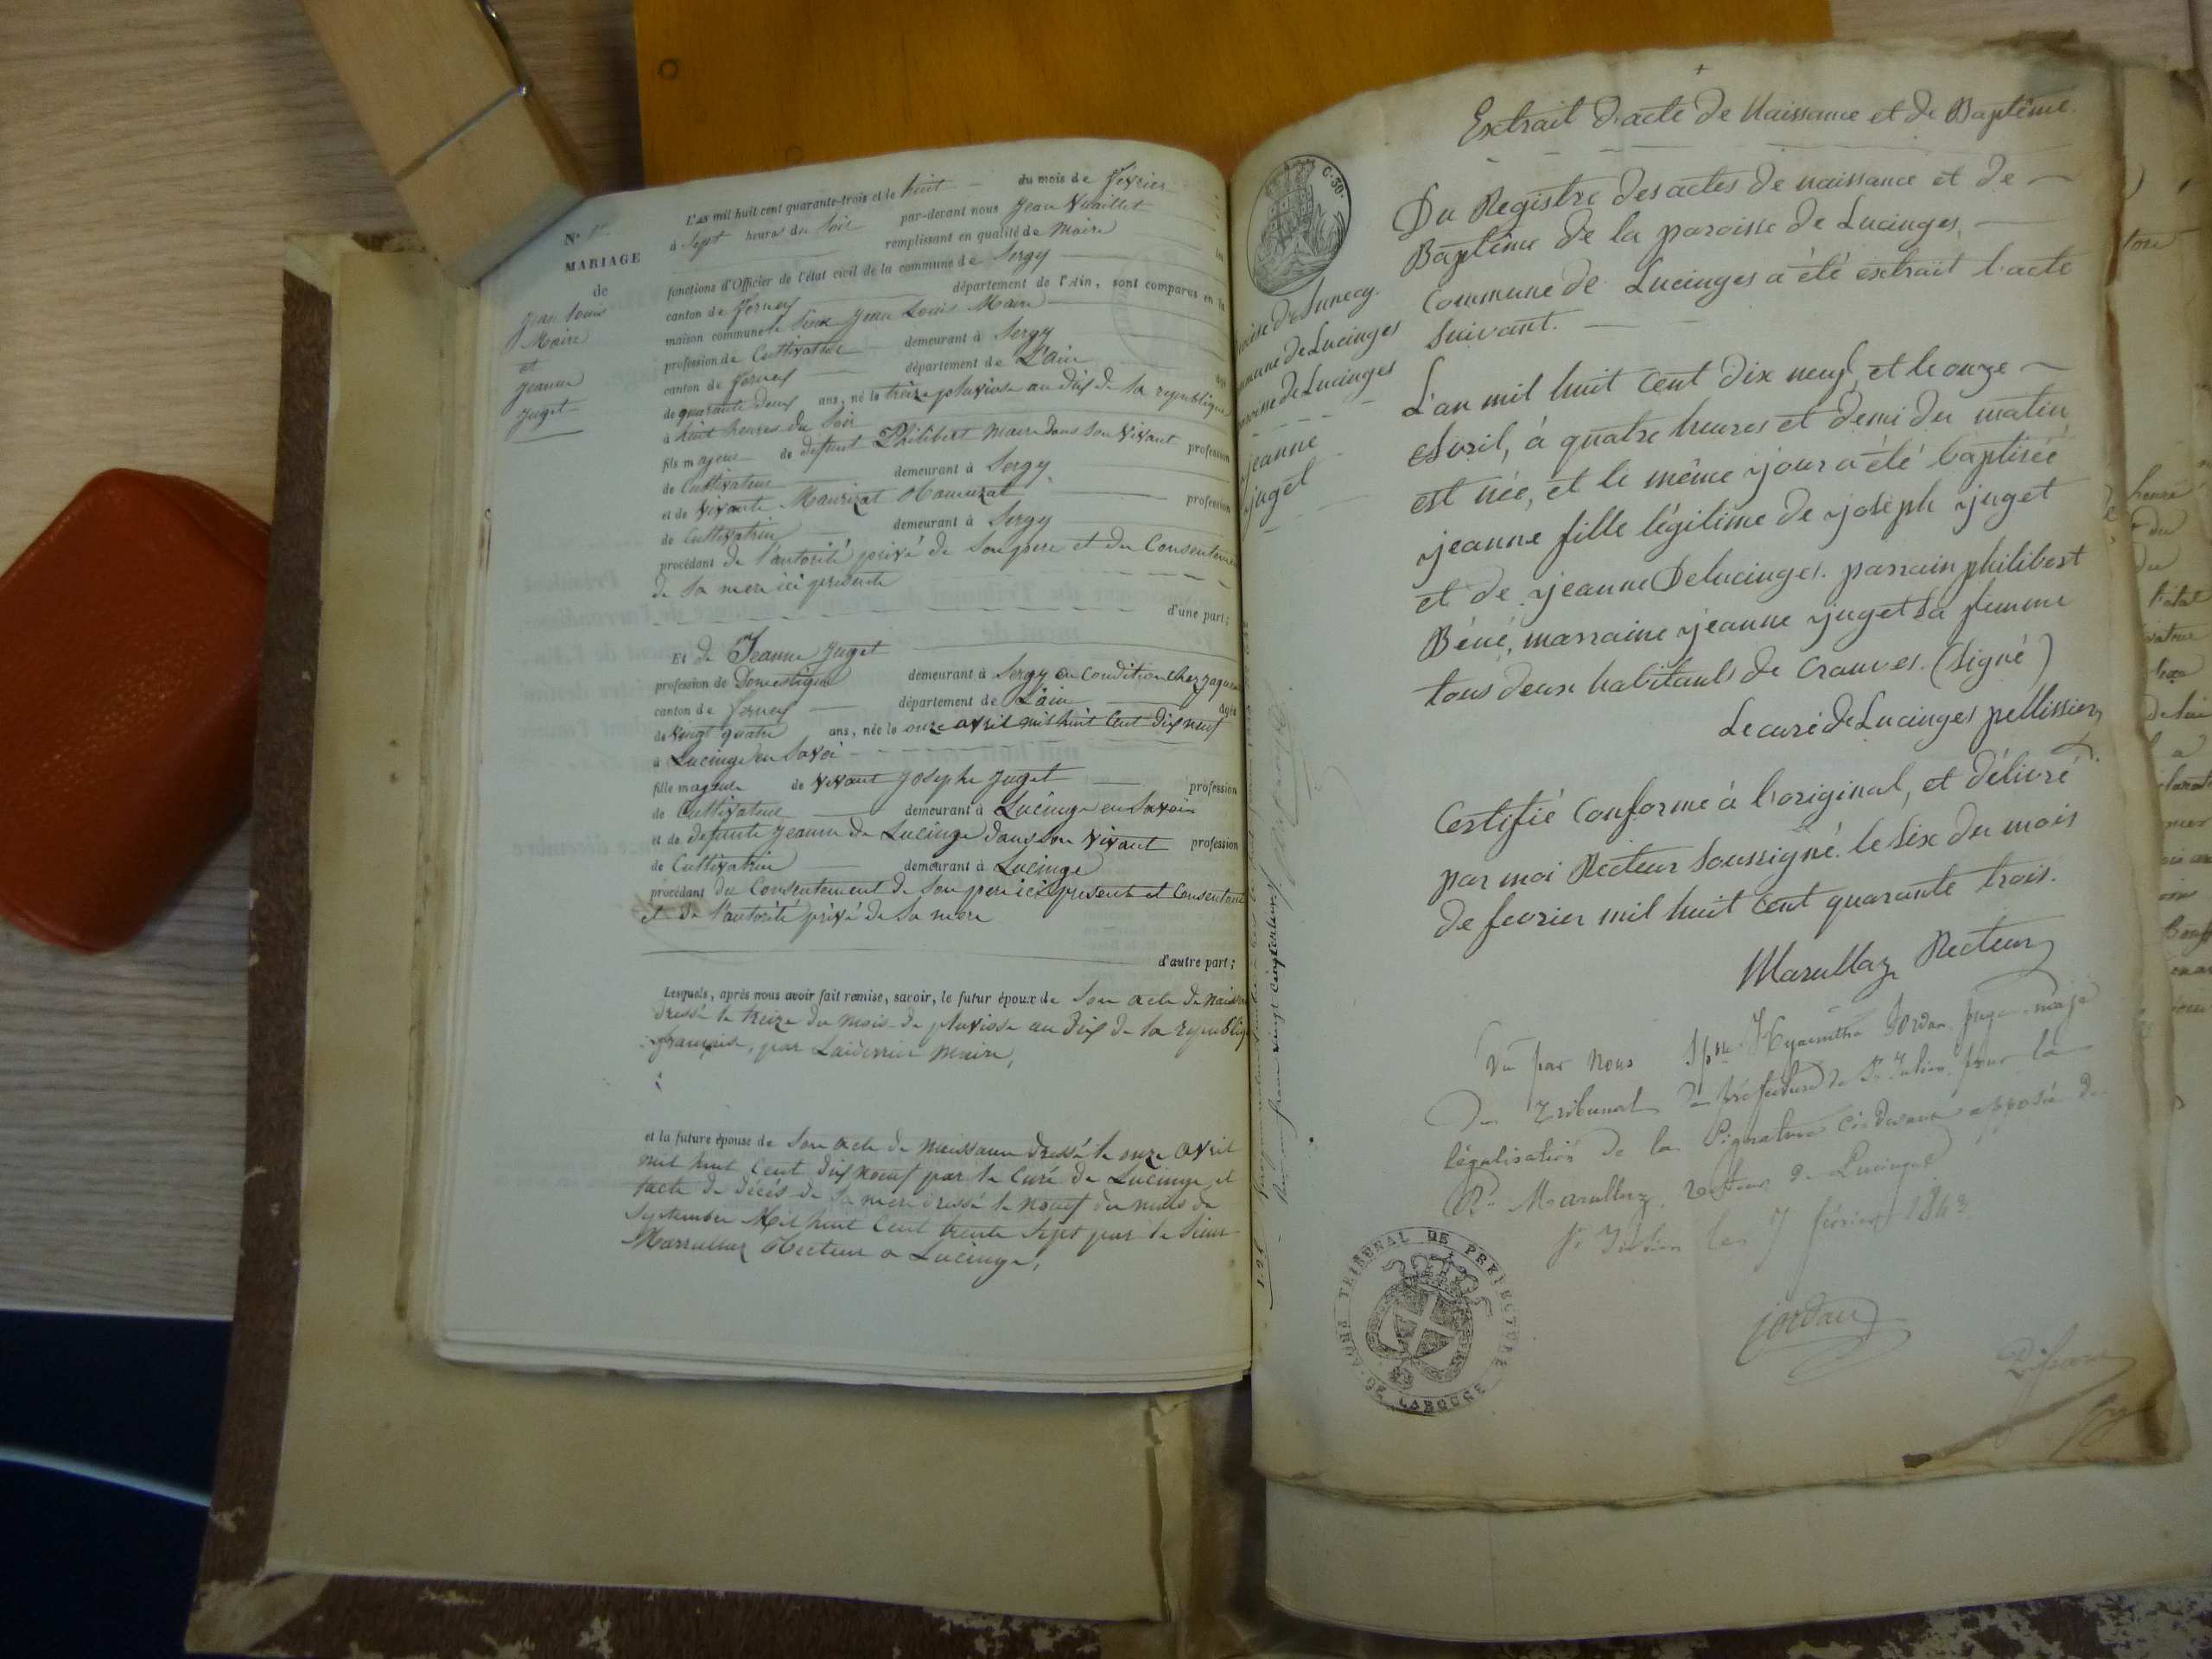 N° 1er
MARIAGE
de
Jean Louis
Maire
et
Jeanne
Juget
L'an mil huit cent quarante-trois et le huit du mois de Fevrier
à Sept heures du Soir par-devant nous Jean Vuaillet
remplissant en qualité de Maire les
fonctions d'Officier de l'état civil de la commune de Sergy
canton de Ferney département de l'Ain, sont comparus en la
maison commune le Sieur Jean Louis Maire
profession de Cultivateur demeurant à Sergy
canton de Ferney département de L'ain âgé
de quarante deux ans, né le treize pluviose an dix de la republique
à huit heures du Soir
fils majeur de defunt Philibert Maire dans son vivant profession
de Cultivateur demeurant à Sergy
et de vivante profession
de Cultivatrice demeurant à Sergy
procédant de l'autorité privé de Son pere et du Consenteme
de Sa mere ici presente
d'une part;
Et de Jeanne Juget
profession de Domestique demeurant à Sergy en Condition chez
canton de Ferney département de L'ain âgée
de vingt quatre ans, née le onze avril mil huit Cent dix neuf
à Lucinge en Savoi
fille majeure de vivant Josephe Juget profession
de Cultivateur demeurant à Lucinge en Savoie
et de defunte Jeanne de Lucinge dans son vivant profession
de Cultivatrice demeurant à Lucinge
procédant du Consentement de Son pere ici present et Consentant
et de l'autorité privé de Sa mere
d'autre part;
Lesquels, après nous avoir fait remise, savoir, le futur époux de Son acte de naissa
dressé le treize du mois de pluviose an dix de la republiq
française, par Maire,
et la future épouse de Son acte de naissance dressé le onze avril
mil huit Cent dix neuf par le Curé de Lucinge et
l'acte de décès de Sa mere dressé le neuf du mois de
September Mil huit Cent trente Sept par le Sieur
Marrullaz Recteur a Lucinge,
C. 30.
Extrait d'acte de Naissance et de Baptême.
Du Registre des actes de naissance et de
Baptême de la paroisse de Lucinges,
Commune de Lucinges a été extrait l'acte
Suivant.
de Annecy.
mmune de Lucinges
aroisse de Lucinges
jeanne
juget
L'an mil huit Cent dix neuf, et le onze
Avril, à quatre heures et demi du matin
est née, et le même jour a été baptisée
jeanne fille légitime de joseph juget
et de jeanne Delucinges. parrain philibert
Béné, marraine jeanne juget sa femme
tous deux habitants de Cranves. (Signé)
Le curé de Lucinges pellissier
Certifié Conforme à l'original, et délivré
par moi Recteur Soussigné. le Six du mois
de fevrier mil huit Cent quarante trois.
Marullaz Recteur
Vu par Nous Hyacinthe Jordan juge maje
du Tribunal de préfecture de St Julien pour la
légalisation de la Signature ci devant apposée de
Rd Marullaz, recteur de Lucinges
St Julien les 7 février 1843
jordan
TRIBUNAL DE PREFECTURE